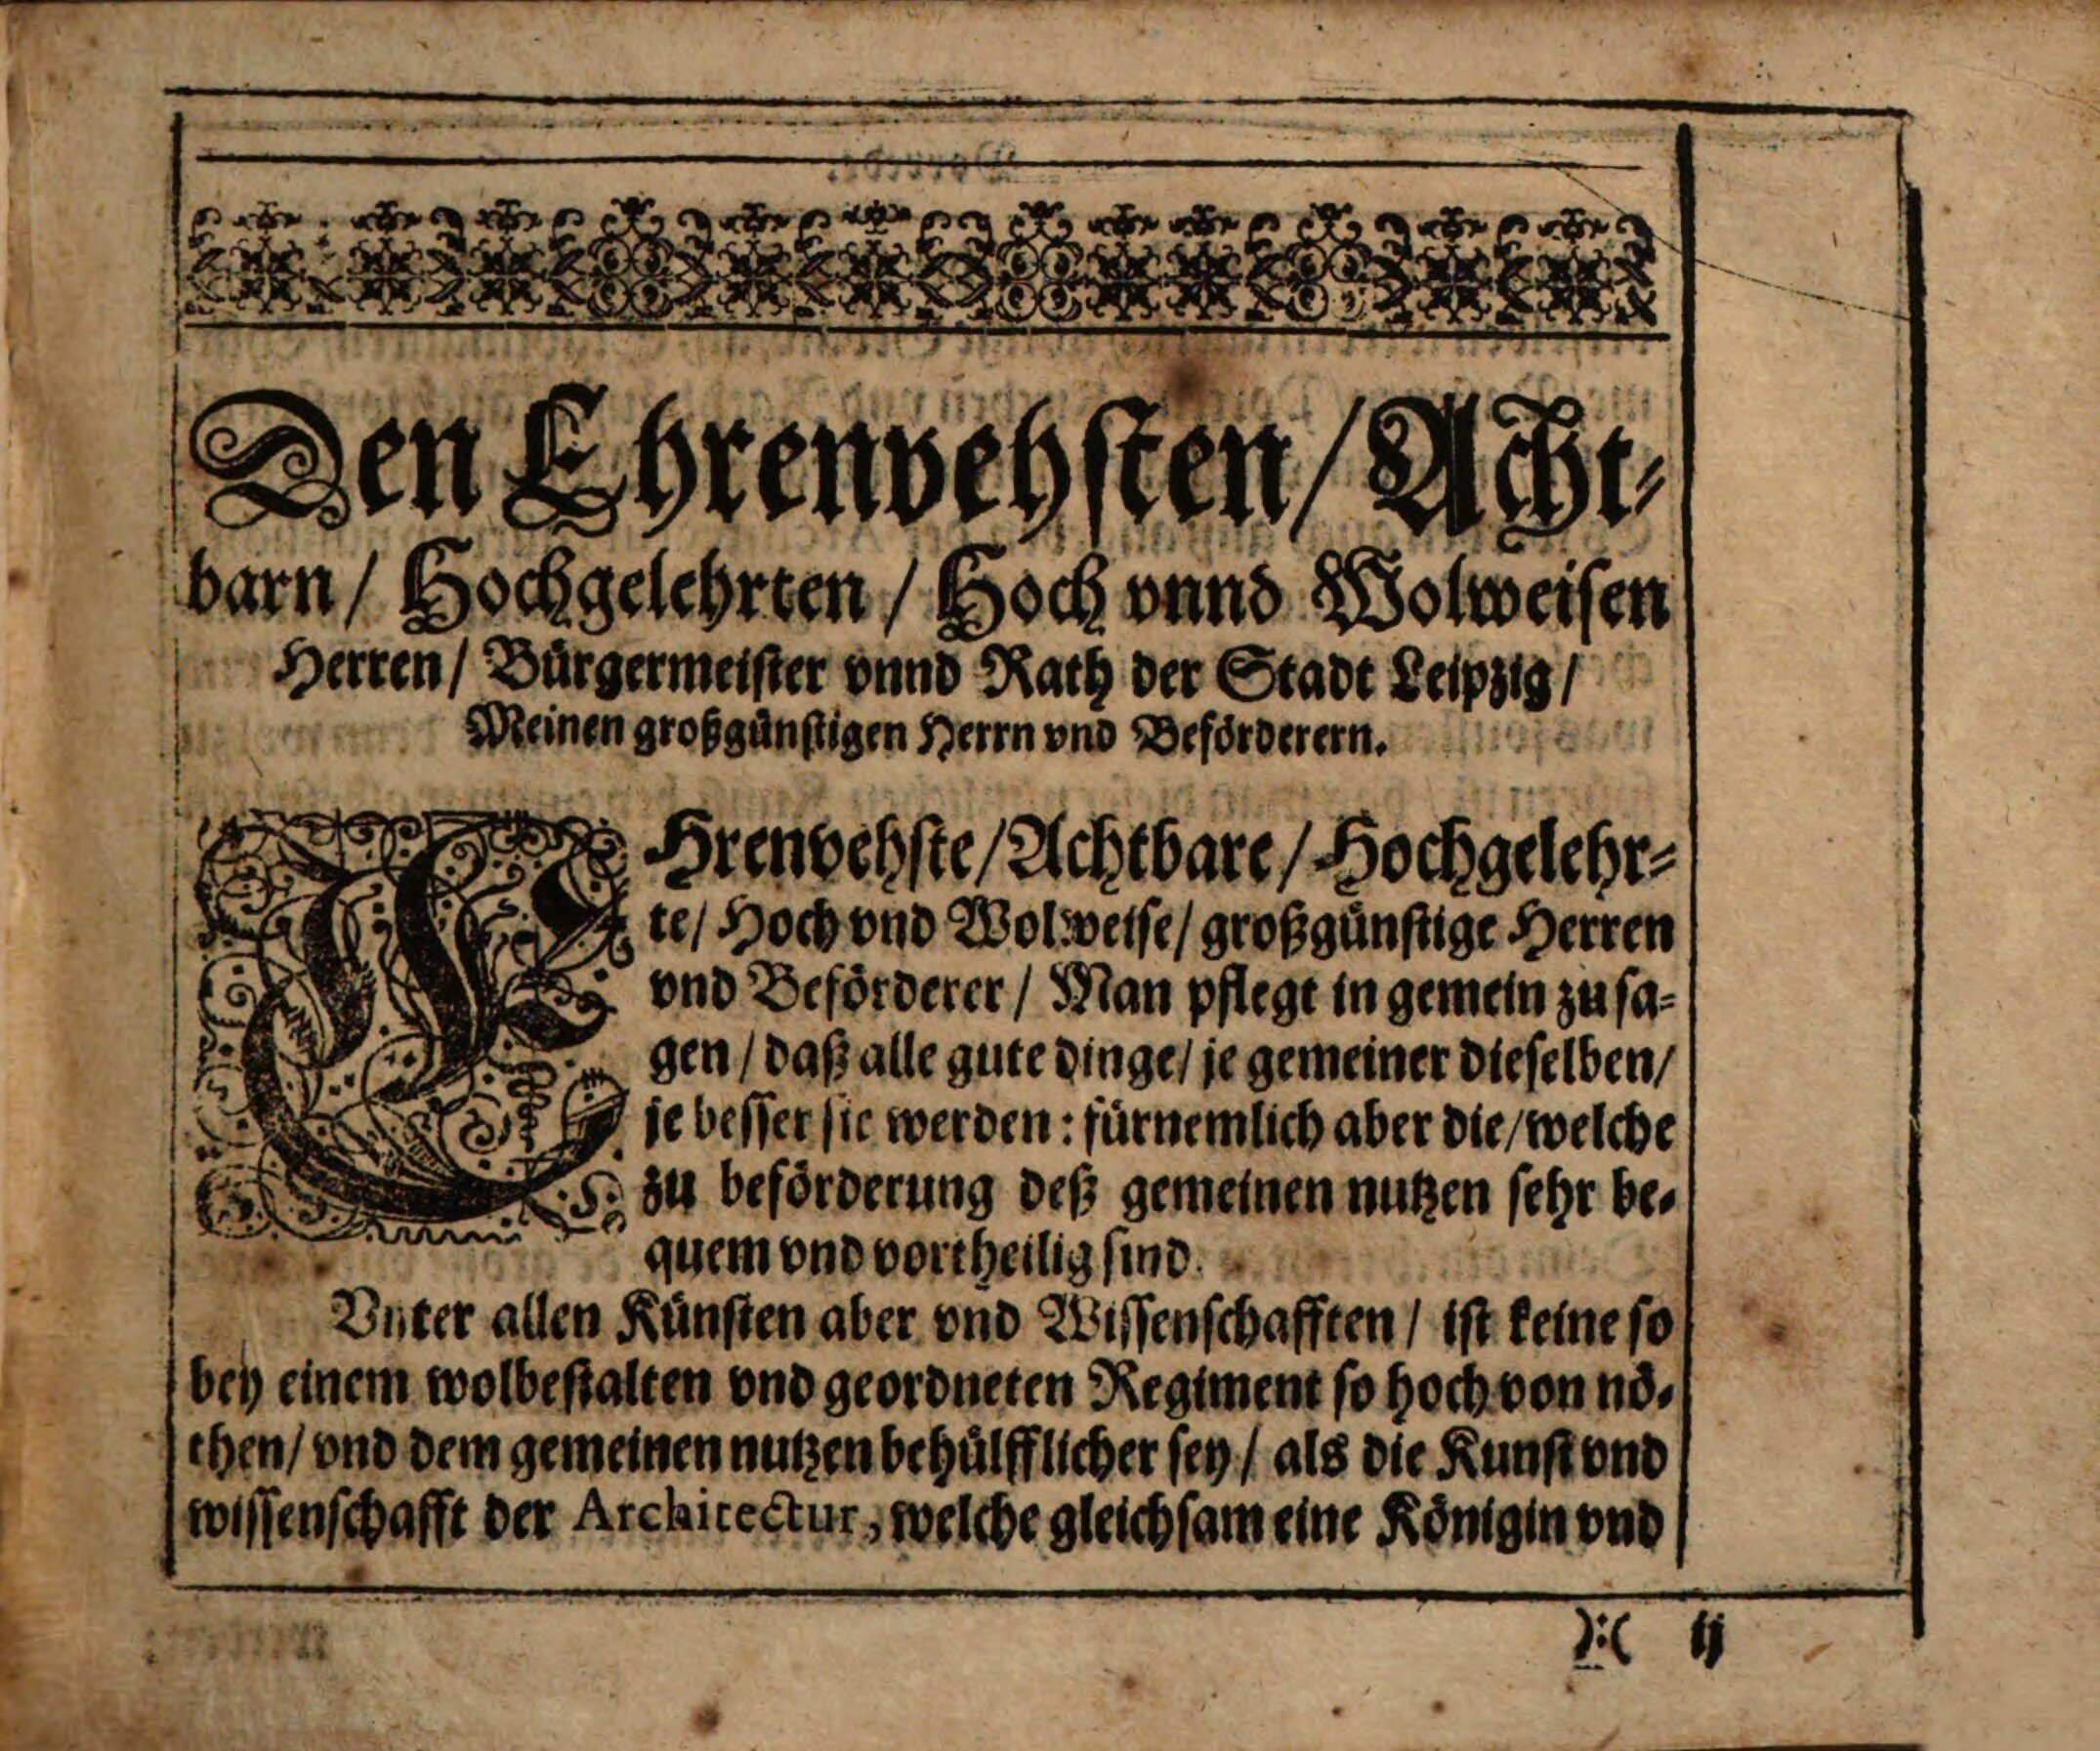 Den Ehrenvehsten/ Acht⸗
barn/ Hochgelehrten/ Hoch vnnd Wolweisen
Herren/ Bürgermeister vnnd Rath der Stadt Leipzig/
Meinen großgünstigen Herrn vnd Beförderern.
EHrenvehste/ Achtbare/ Hochgelehr⸗
te/ Hoch vnd Wolweise/ großgünstige Herren
vnd Beförderer/ Man pflegt in gemein zu sa⸗
gen/ daß alle gute dinge/ je gemeiner dieselben/
je besser sie werden: fürnemlich aber die/ welche
zu beförderung deß gemeinen nutzen sehr be⸗
quem vnd vortheilig sind.
Vnter allen Künsten aber vnd Wissenschafften/ ist keine so
bey einem wolbestalten vnd geordneten Regiment so hoch von nö⸗
then/ vnd dem gemeinen nutzen behülfflicher sey/ als die Kunst vnd
wissenschafft der Architectur, welche gleichsam eine Königin vnd
):( ij